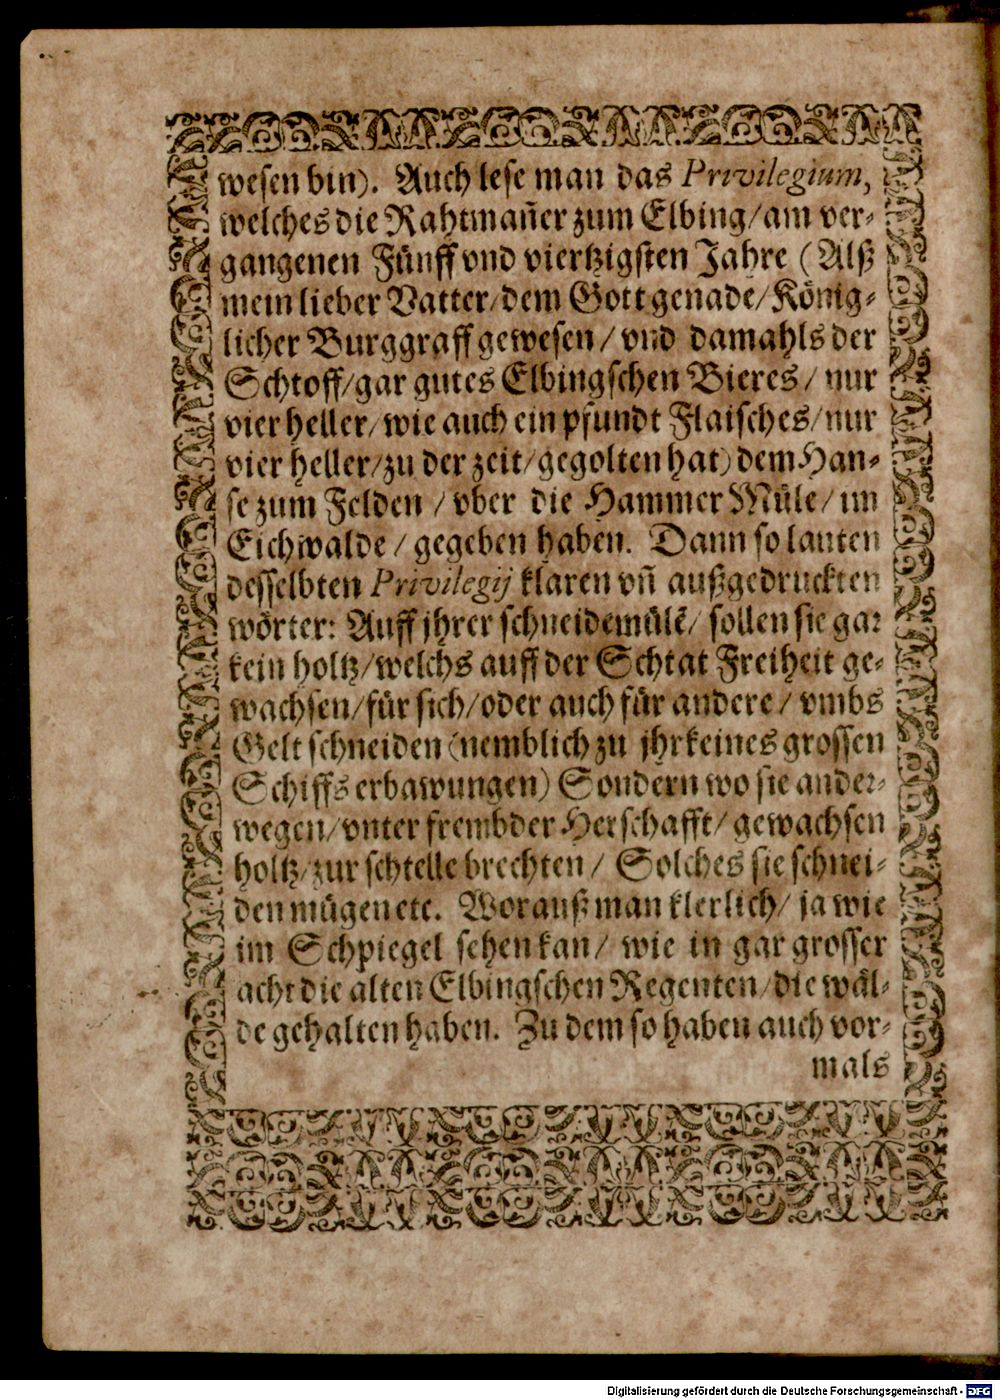 wesen bin). Auch lese man das Privilegium,
welches die Rahtmañer zum Elbing/am ver-
gangenen Fünff vnd viertzigsten Jahre (Alß
mein lieber Vatter/dem Gott genade/König-
licher Burggraff gewesen/ vnd damahls der
Schtoff/gar gutes Elbingschen Bieres/ nur
vier heller/wie auch ein pfundt Flaisches/nur
vier heller/zu der zeit/gegolten hat) dem Han-
se zum Felden / vber die Hammer Müle/ im
Eichwalde / gegeben haben. Dann so lauten
desselbten Privilegij klaren vñ außgedruckten
wörter: Auff jhrer schneidemülẽ/ sollen sie gar
kein holtz/welchs auff der Schtat Freiheit ge-
wachsen/für sich/oder auch für andere/ vmbs
Gelt schneiden (nemblich zu jhrkeines grossen
Schiffs erbawungen) Sondern wo sie ander-
wegen/vnter frembder Herschafft/ gewachsen
holtz/zur schtelle brechten / Solches sie schnei-
den mügen etc. Worauß man klerlich/ ja wie
im Schpiegel sehen kan/ wie in gar grosser
acht die alten Elbingschen Regenten/die wäl-
de gehalten haben. Zu dem so haben auch vor-
mals
Digitalisierung gefördert durch die Deutsche Forschungsgemeinschaft - DFG